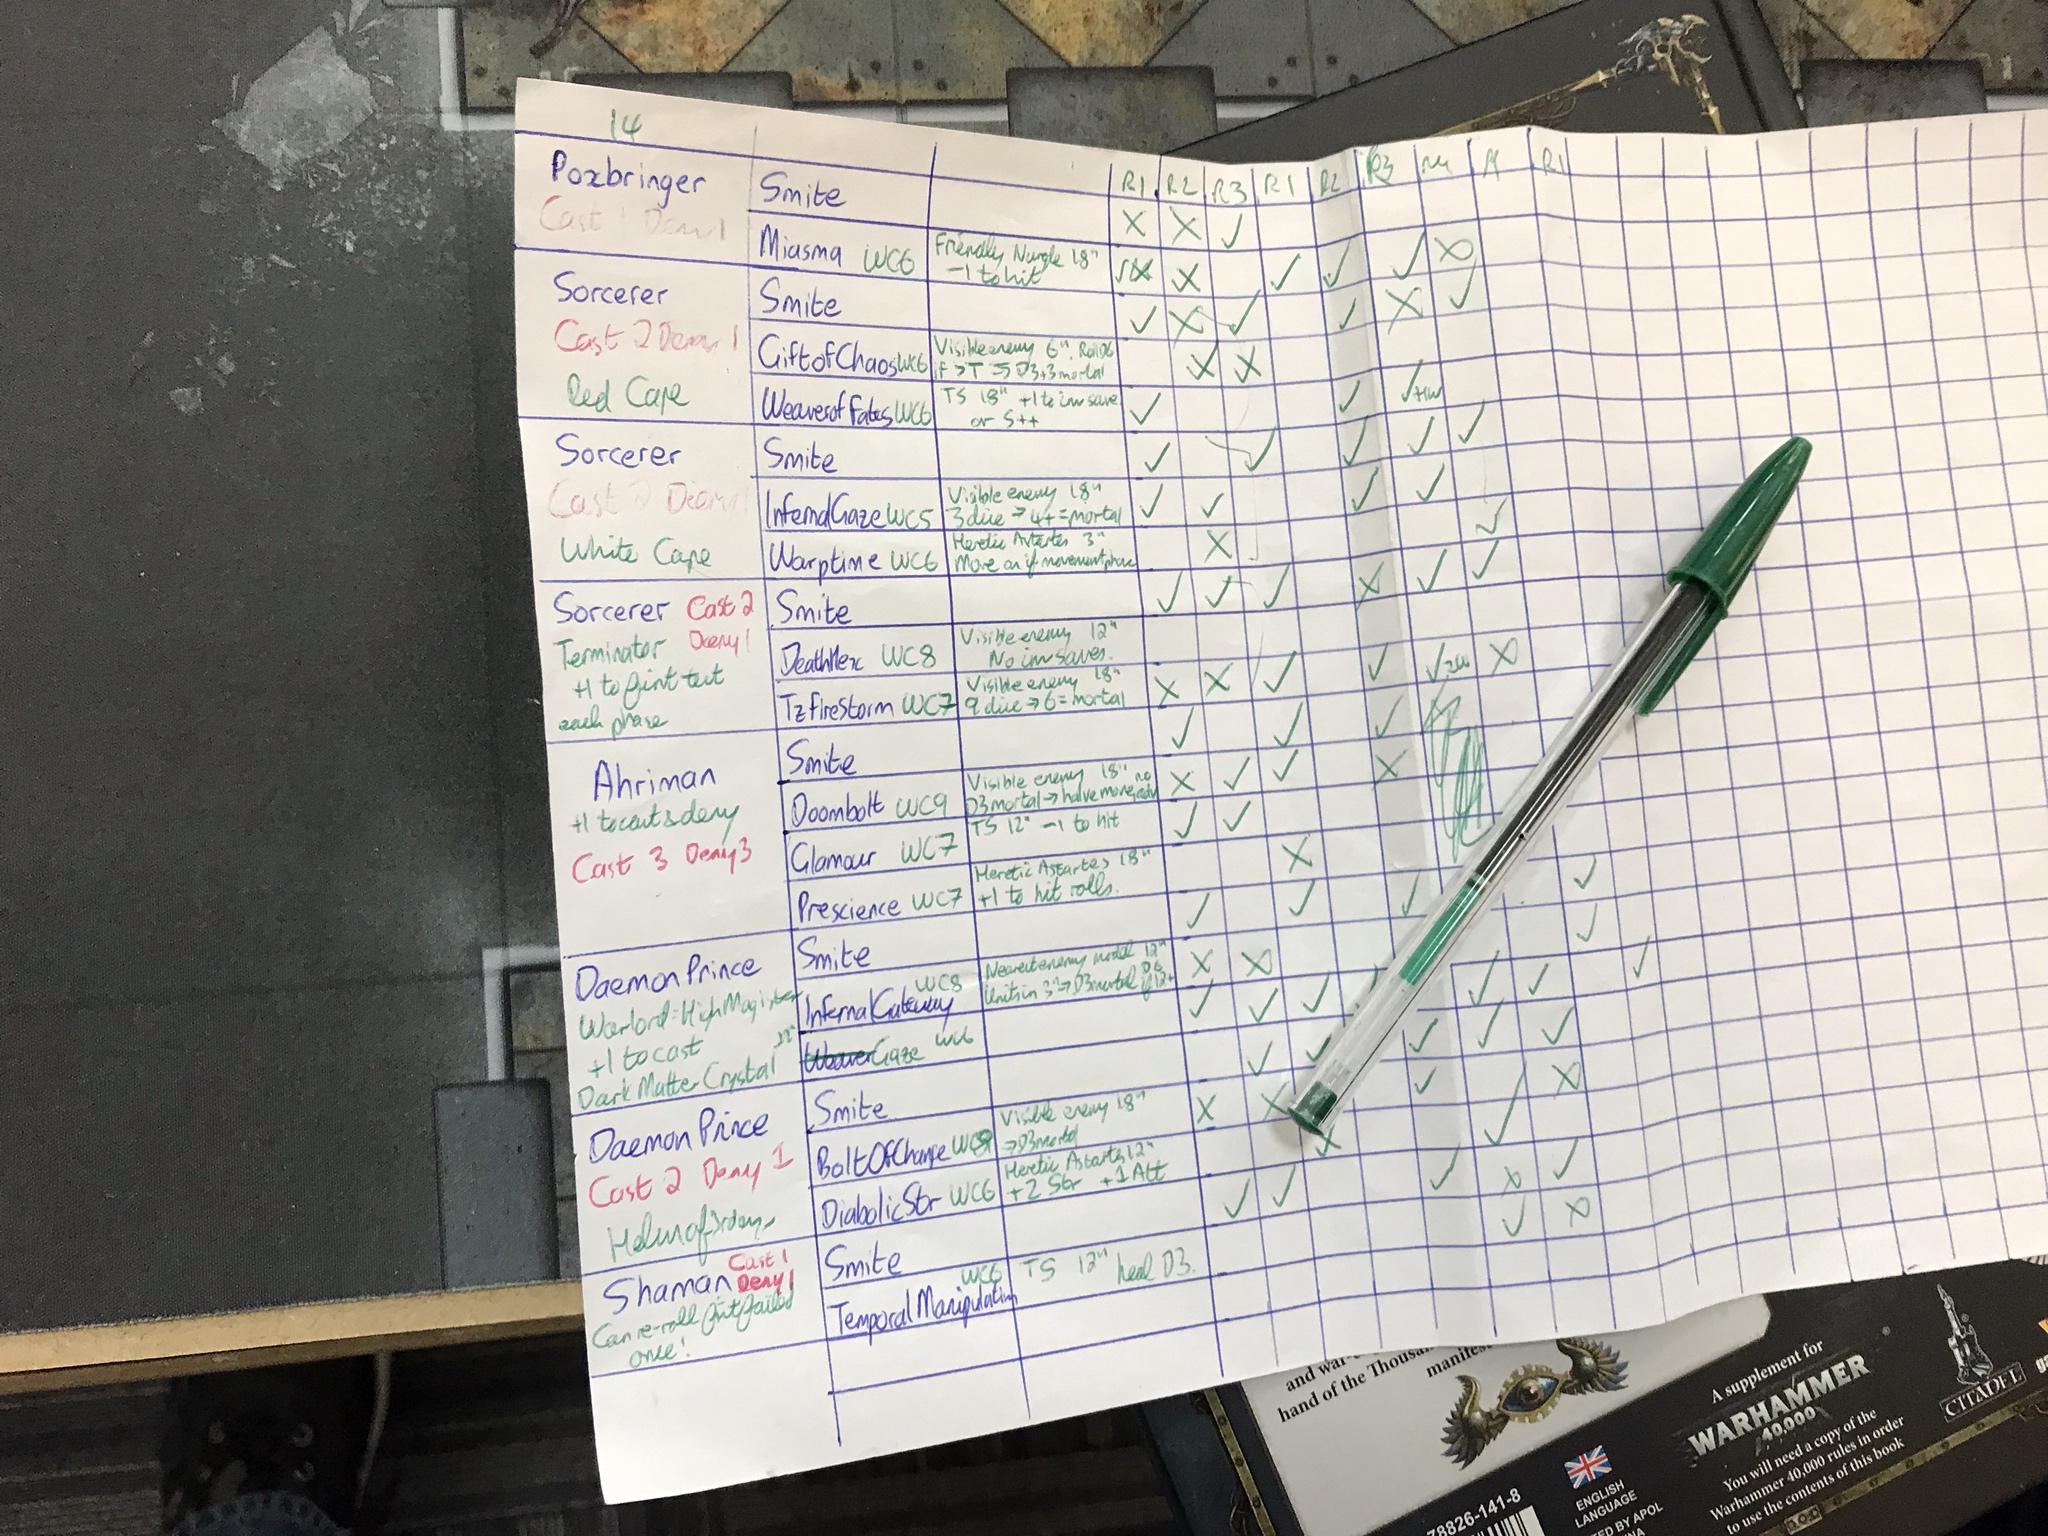 14
R1 R2 R3 R1 R2 R3 R4 R1
Poxbringer
Cast 1 Deny 1
Smite
Miasma WC6
Friendly Nurgle 18"
-1 to hit
Sorcerer
Cast 2 Deny 1
Red Cape
Smite
GiftofChaos WC6
Visible enemy 6". Roll D6
if >T => D3+3 mortal
WeaverofFates WC6
TS 18" +1 to inv save
or 5++
Sorcerer
Cast 2 Deny 1
White Cape
Smite
InfernalGaze WC5
Visible enemy 18"
3 dice → 4+ = mortal
Warptime WC6
Heretic Astartes 3"
Move as if movement phase
Sorcerer Cast 2
Terminator Deny 1
+1 to first test
each phase
Smite
DeathHex WC8
Visible enemy 12"
No inv saves.
TzFireStorm WC7
Visible enemy 18"
9 dice → 6 = mortal
Ahriman
+1 to cast & deny
Cast 3 Deny 3
Smite
Doombolt WC9
Visible enemy 18" no
D3 mortal → halve move, adv
Glamour WC7
TS 12" -1 to hit
Prescience WC7
Heretic Astartes 18"
+1 to hit rolls.
DaemonPrince
Warlord = High Magister
+1 to cast
Dark Matter Crystal 12"
Smite
WC8
InfernalGateway
Nearest enemy model 12"
Units in 3" → D3 mortal D6 if 12+
Weaver Gaze WC6
DaemonPrince
Cast 2 Deny 1
Smite
BoltOfChange
Visible enemy 18"
→ D3 mortal
DiabolicStr WC6
Heretic Astartes 12"
+2 Str +1 Att
Shaman
Cast 1
Deny 1
Can re-roll first failed
once!
Smite
WC6
TemporalManipulation
TS 12" heal D3.
and war
hand of the Thousa
manifes
A supplement for
WARHAMMER
40,000
You will need a copy of the
Warhammer 40,000 rules in order
to use the contents of this book
CITADEL
78826-141-8
ENGLISH
LANGUAGE
TED BY APOL